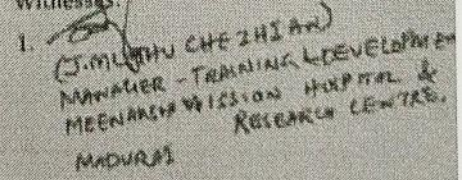 Witnesses:
1.
(J. MUTHU CHEZHIAN)
MANAGER - TRAINING & DEVELOPMEN
MEENAKSHI MISSION HOSPITAL &
RESEARCH CENTRE,
MADURAI